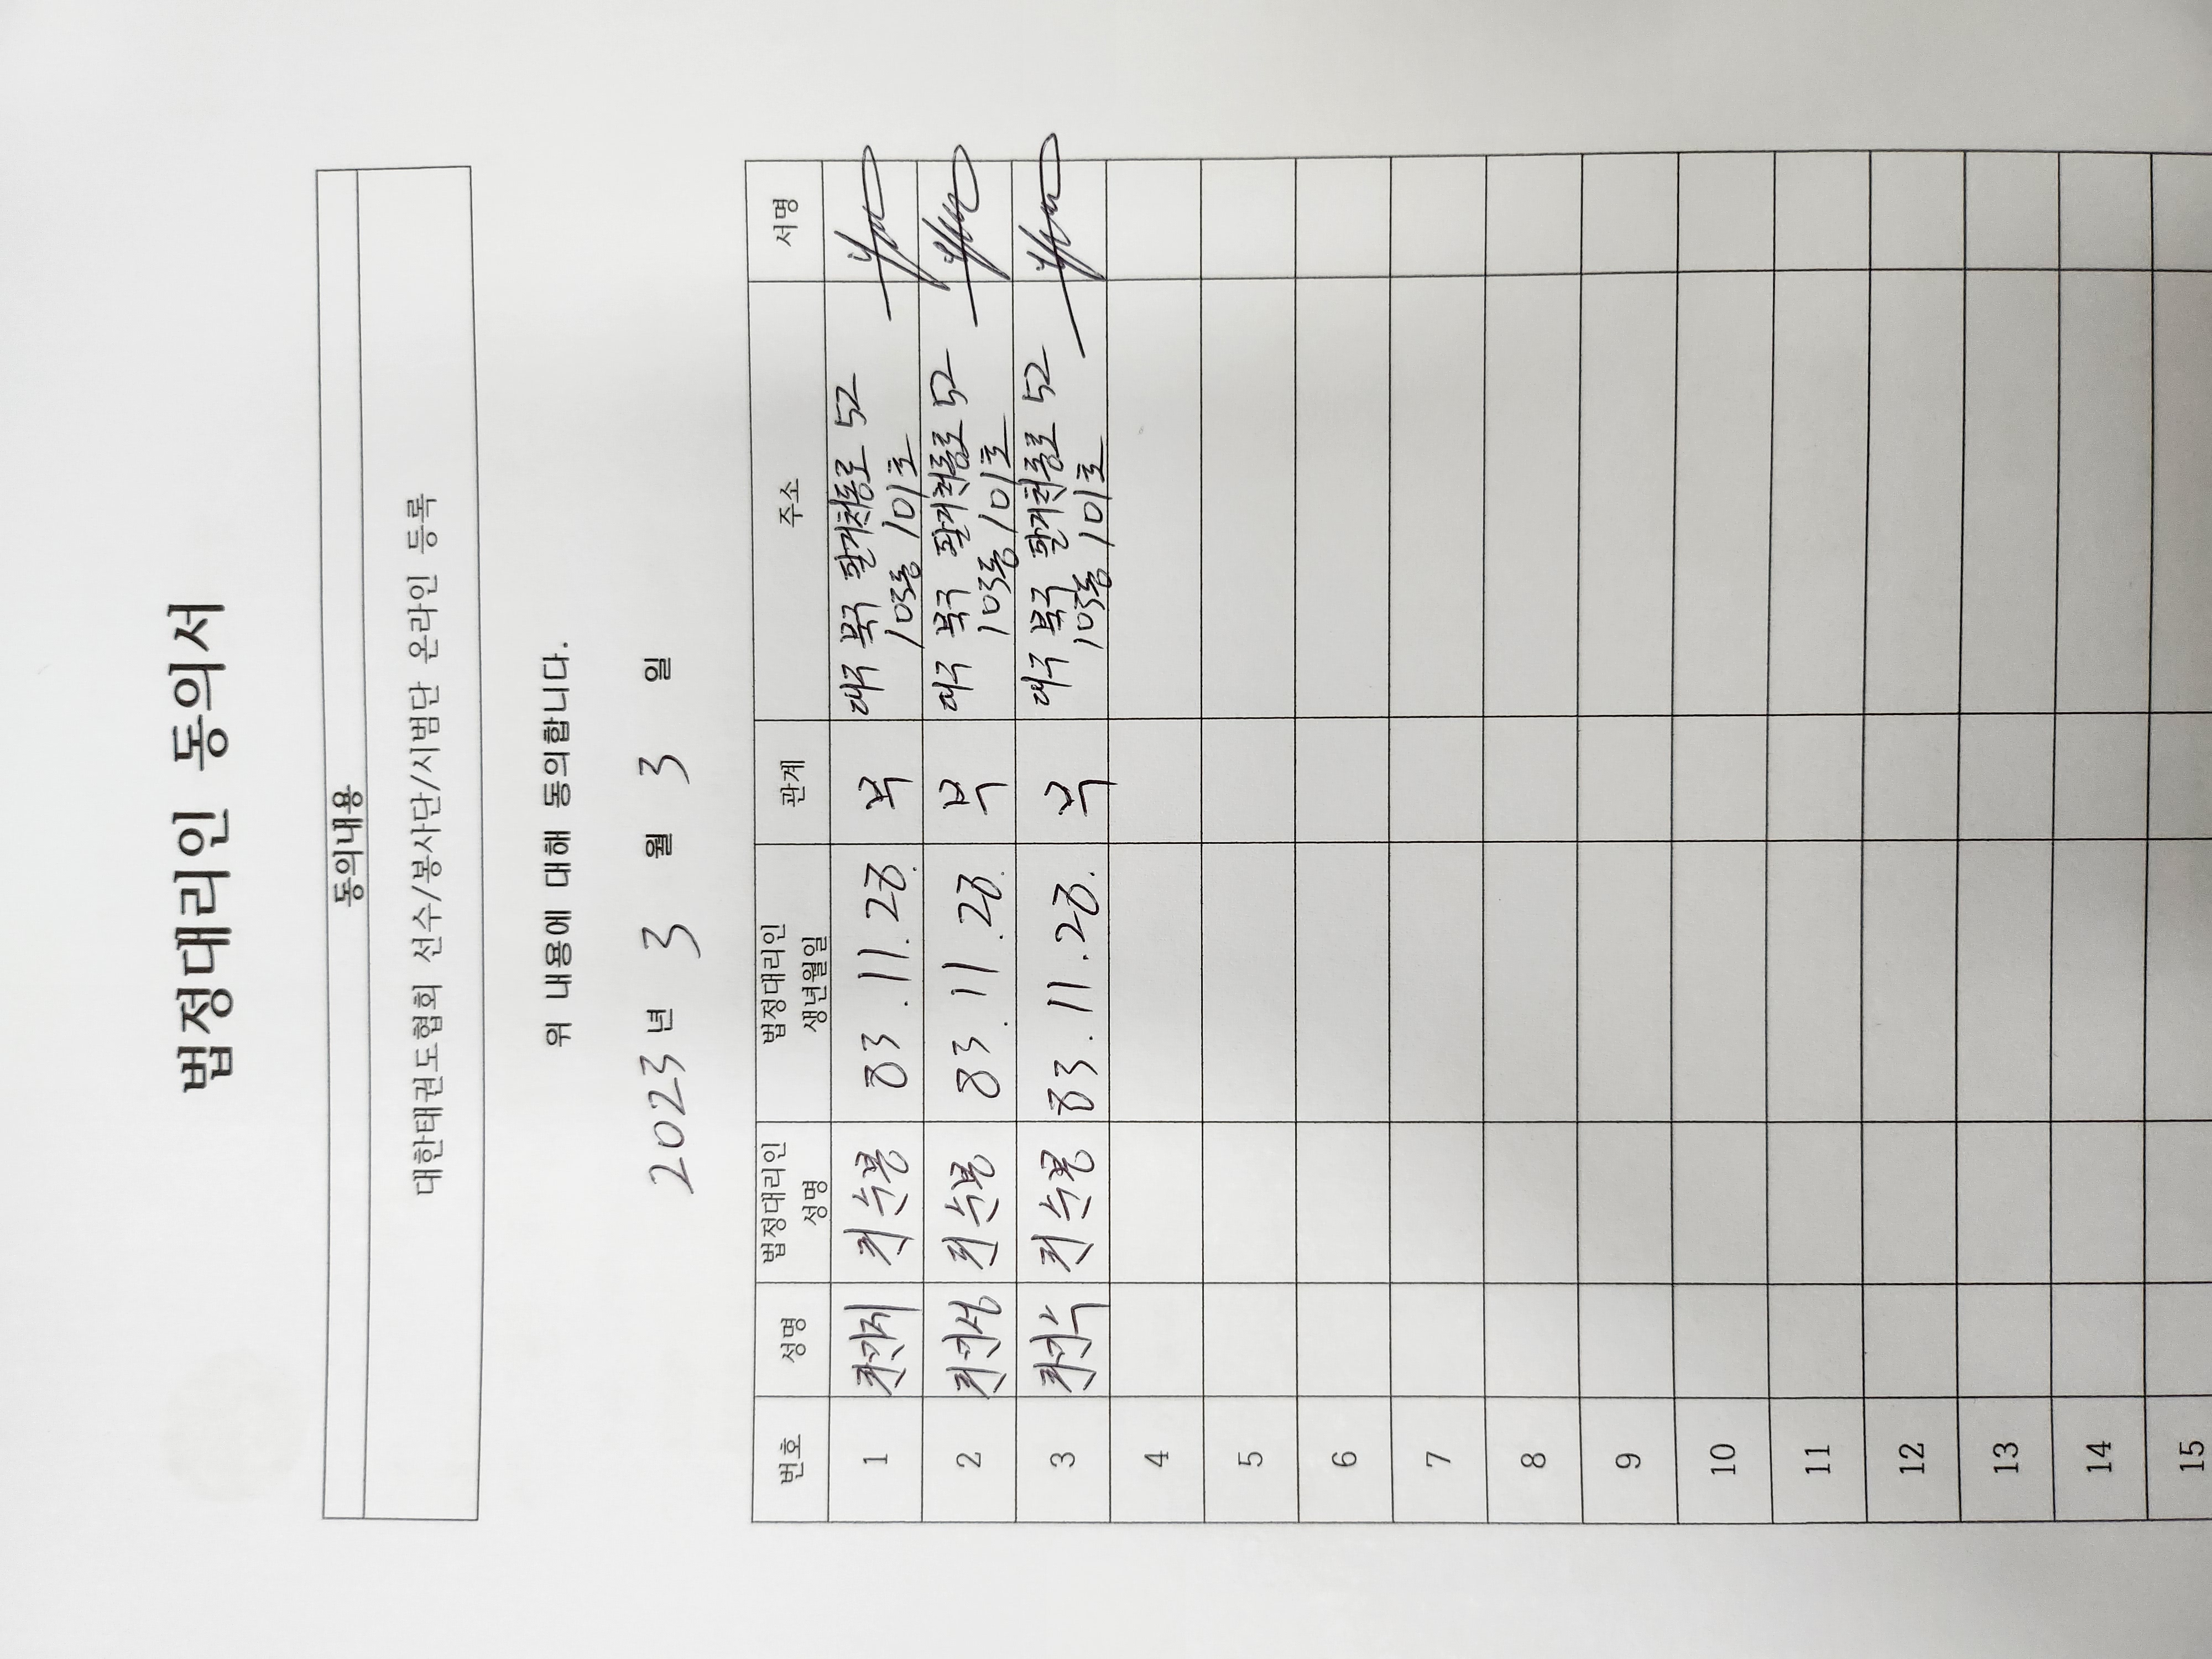 법정대리인 동의서
동의내용
대한태권도협회 선수/봉사단/시범단 온라인 등록
위 내용에 대해 동의합니다.
2023년 3 월 3 일
번호 성명 법정대리인 성명 법정대리인 생년월일 관계 주소 서명
1 최수봉 83.11.28. 부 대구 북구 팔거천동로 52
103동 101호
2 최수봉 83.11.28. 부 대구 북구 팔거천동로 52
103동 101호
3 최수봉 83.11.28. 부 대구 북구 팔거천동로 52
103동 101호
4
5
6
7
8
9
10
11
12
13
14
15